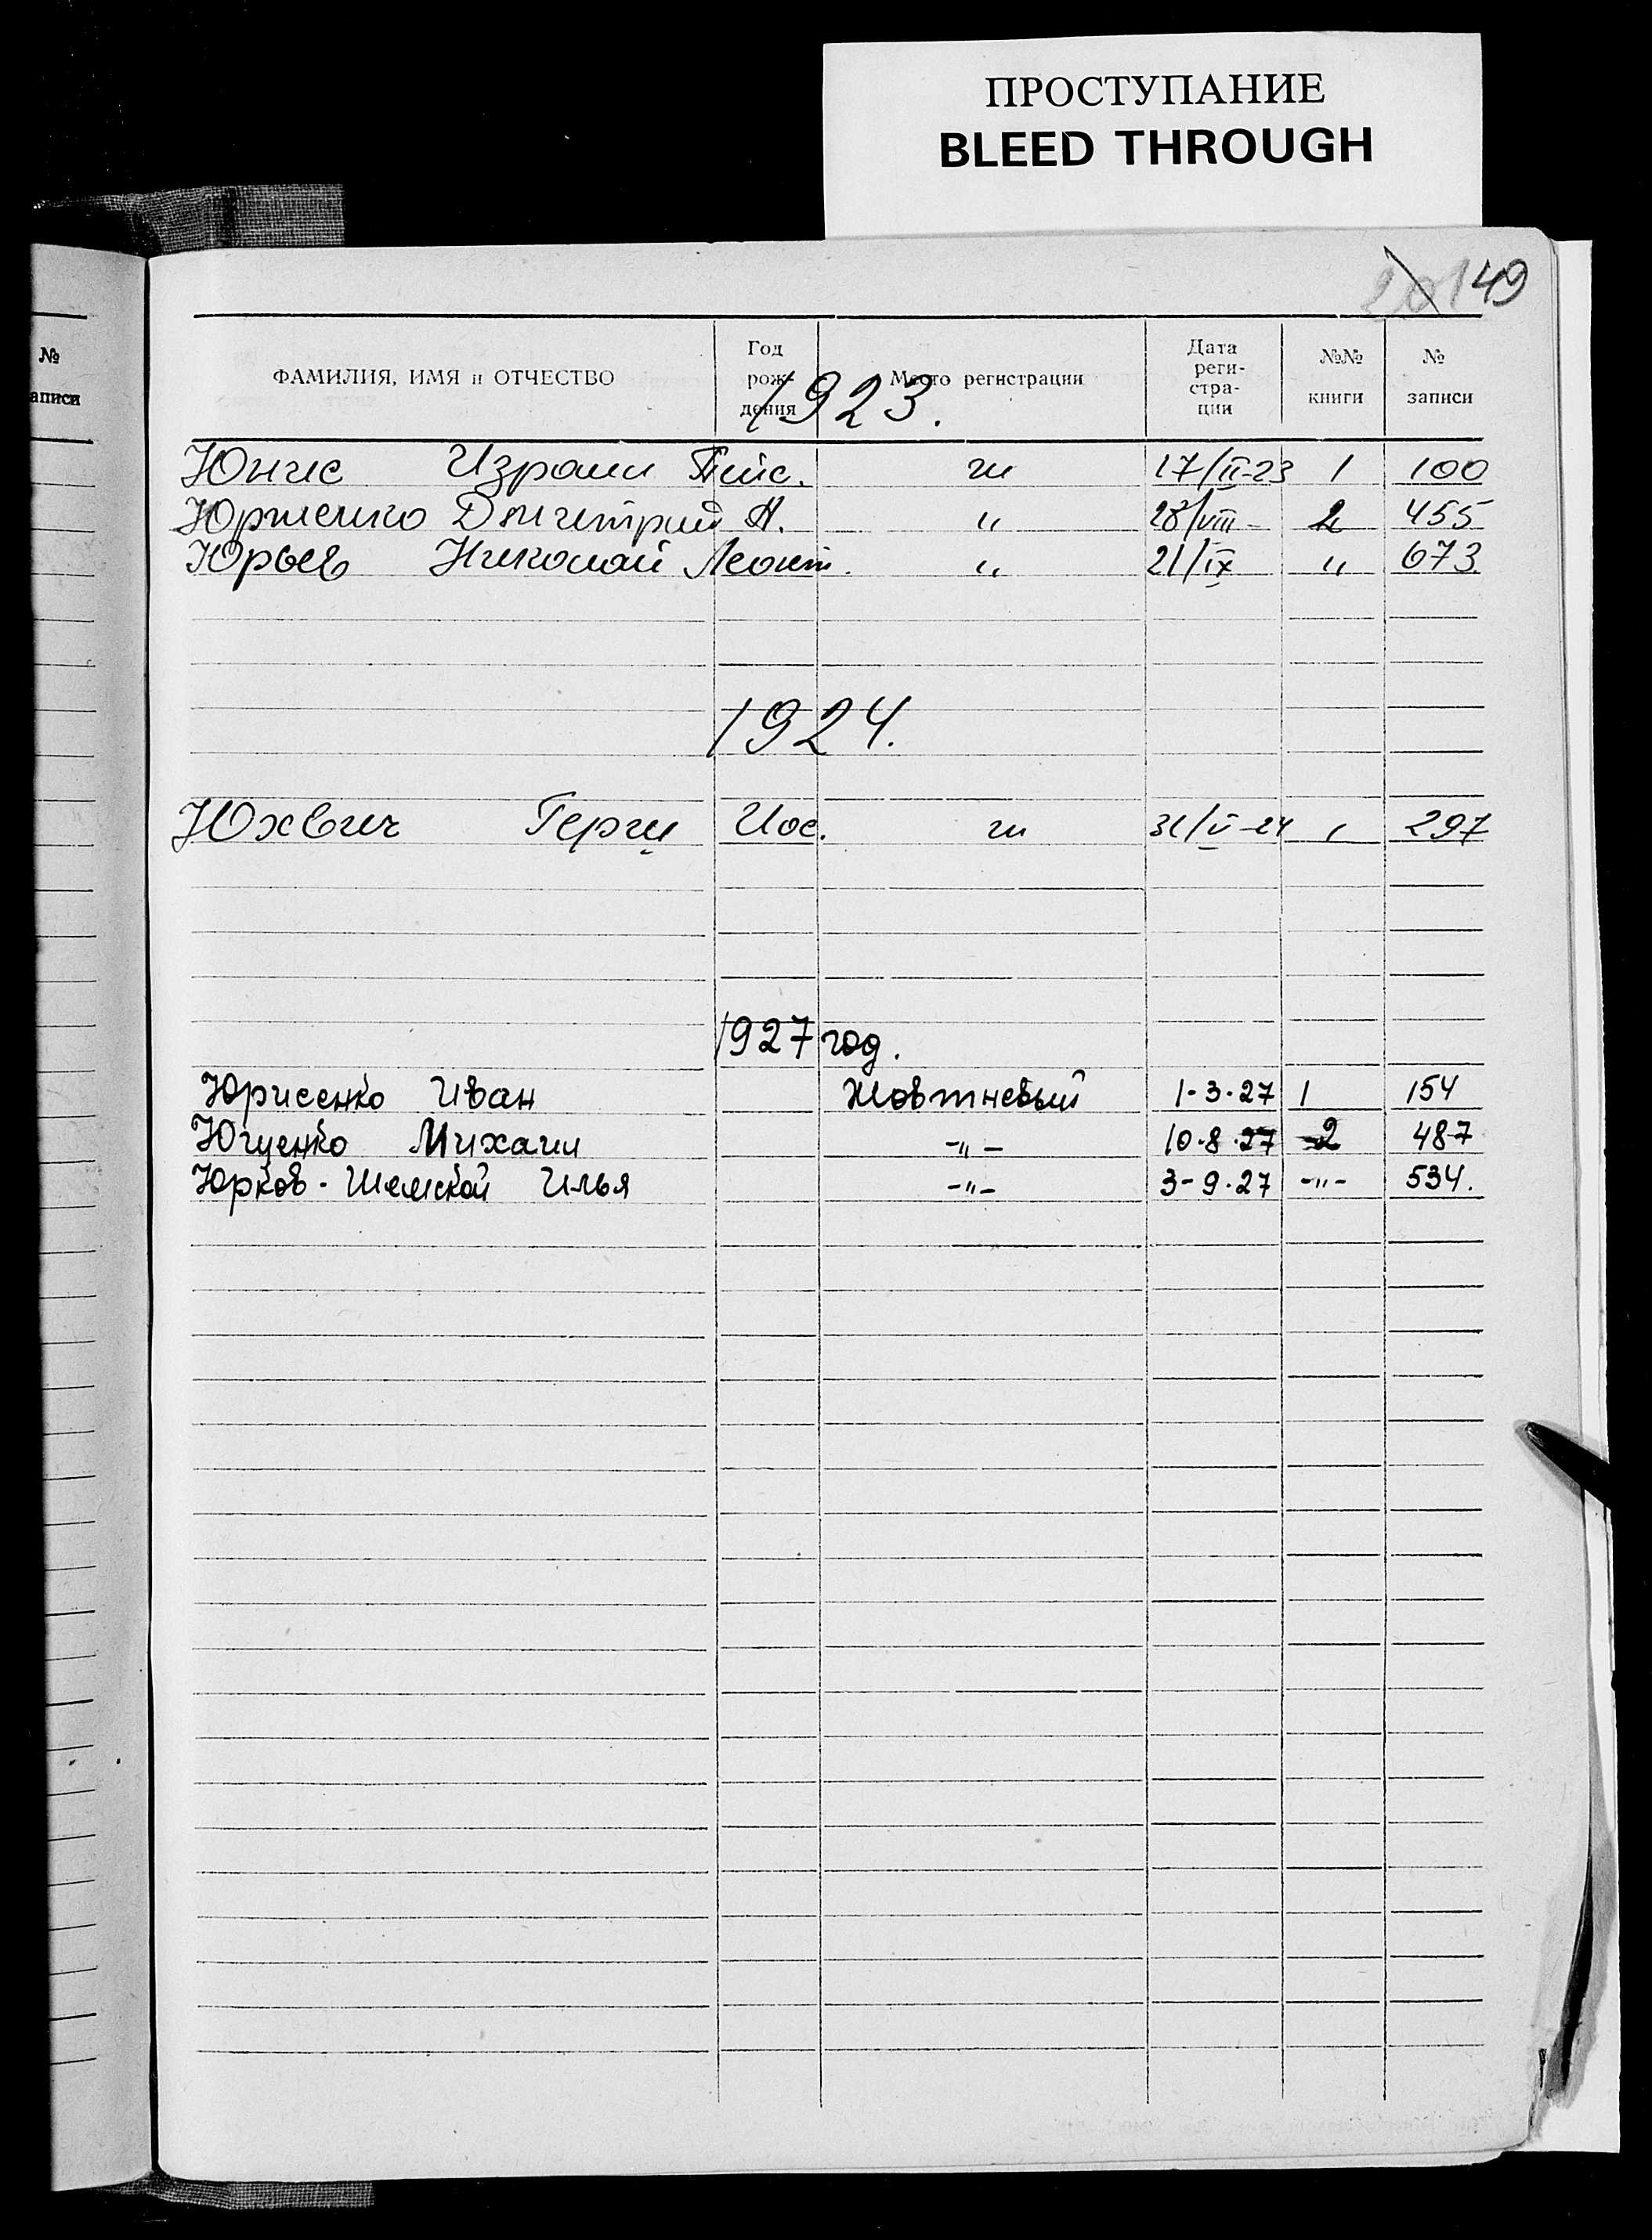 ПРОСТУПАНИЕ
BLEED THROUGH
49
№
аписи
ФАМИЛИЯ, ИМЯ и ОТЧЕСТВО Год рождения Место регистрации Дата регистрации №№ книги № записи
1923.
Юнис Израил Пейс. " 17/II-23 1 100
Юрженко Дмитрий А. " 28/VIII- 2 455
Юрьев Николай Леонт. " 21/IX " 673
1924.
Юхвич Герш Иос. 31/V-24 297
1927 год.
Юрисенко Иван Жовтневый 1-3-27 1 154
Ющенко Михаил -"- 10.8.27 2 487
Юрков-Шемской Илья -"- 3-9.27 -"- 534.